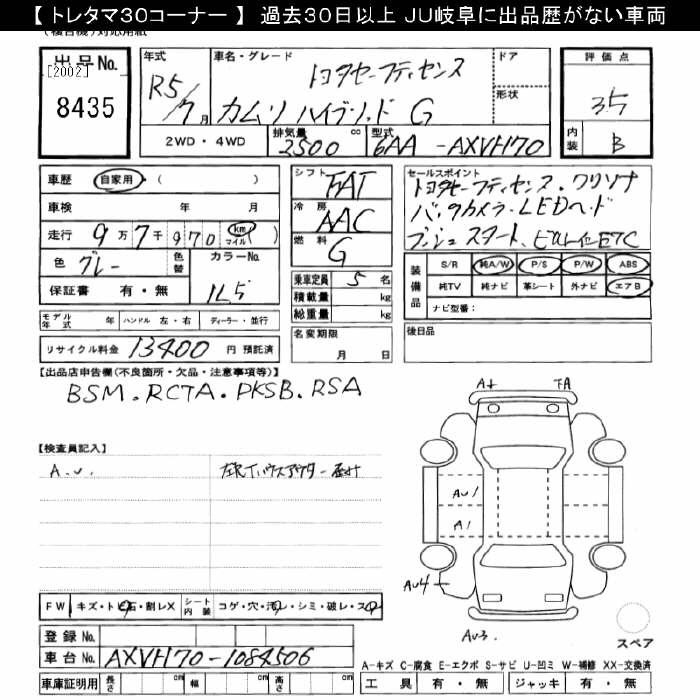 【トレタマ30コーナー】過去30日以上JU岐阜に出品歴がない車両
出品No.
[2002]
8435
年式
R5/7月
車名・グレード
トヨタセーフティセンス
カムリ ハイブリッド G
ドア
形状
評価点
3.5
内装
B
2WD・4WD
排気量
2500 cc
型式
6AA-AXVH70
車歴 自家用 ( )
車検 年 月
走行 9万7千970 km マイル( )
色 グレー
色替
カラーNo.
1L5
保証書 有・無
モデル年式 年 ハンドル 左・右 ディーラー・並行
リサイクル料金 13400 円 預託済
シフト FAT
冷房 AAC
燃料 G
乗車定員 5 名
積載量 kg
総重量 kg
名変期限
月 日
セールスポイント
トヨタセーフティセンス・クリソナ
バックカメラ・LEDヘッド
プッシュスタート、ビルトインETC
装備品
S/R 純A/W P/S P/W ABS
純TV 純ナビ 革シート 外ナビ エアB
ナビ型番:
後日品
【出品店申告欄(不良箇所・欠品・注意事項等)】
BSM.RCTA.PKSB.RSA
【検査員記入】
A.U.
A+
FA
AU1
A1
AU4
AU3.
スペア
FW キズ・ト石・割レX
シート内装 コゲ・穴・汚レ・シミ・破レ・スレ
登録No.
車台No. AXVH70-1084506
車庫証明用 長さ cm 幅 cm 高さ cm
A-キズ C-腐食 E-エクボ S-サビ U-凹ミ W-補修 XX-交換済
工具 有・無 ジャッキ 有・無